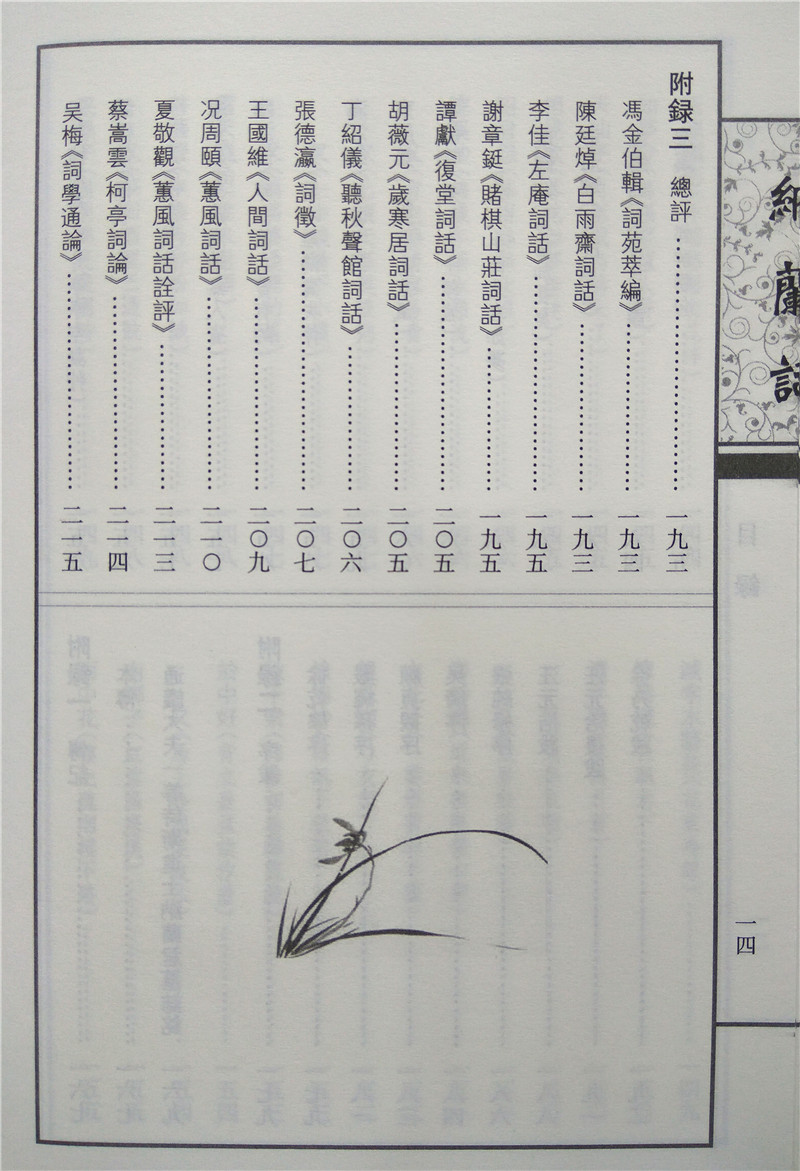 附録三 總評 ………… 一九三
馮金伯輯《詞苑萃編》 ………… 一九三
陳廷焯《白雨齋詞話》 ………… 一九三
李佳《左庵詞話》 ………… 一九五
謝章鋌《賭棋山莊詞話》 ………… 一九五
譚獻《復堂詞話》 ………… 二〇五
胡薇元《歲寒居詞話》 ………… 二〇五
丁紹儀《聽秋聲館詞話》 ………… 二〇六
張德瀛《詞徵》 ………… 二〇七
王國維《人間詞話》 ………… 二〇九
况周頤《蕙風詞話》 ………… 二一〇
夏敬觀《蕙風詞話詮評》 ………… 二一三
蔡嵩雲《柯亭詞論》 ………… 二一四
吴梅《詞學通論》 ………… 二一五
納蘭詞
目録
一四